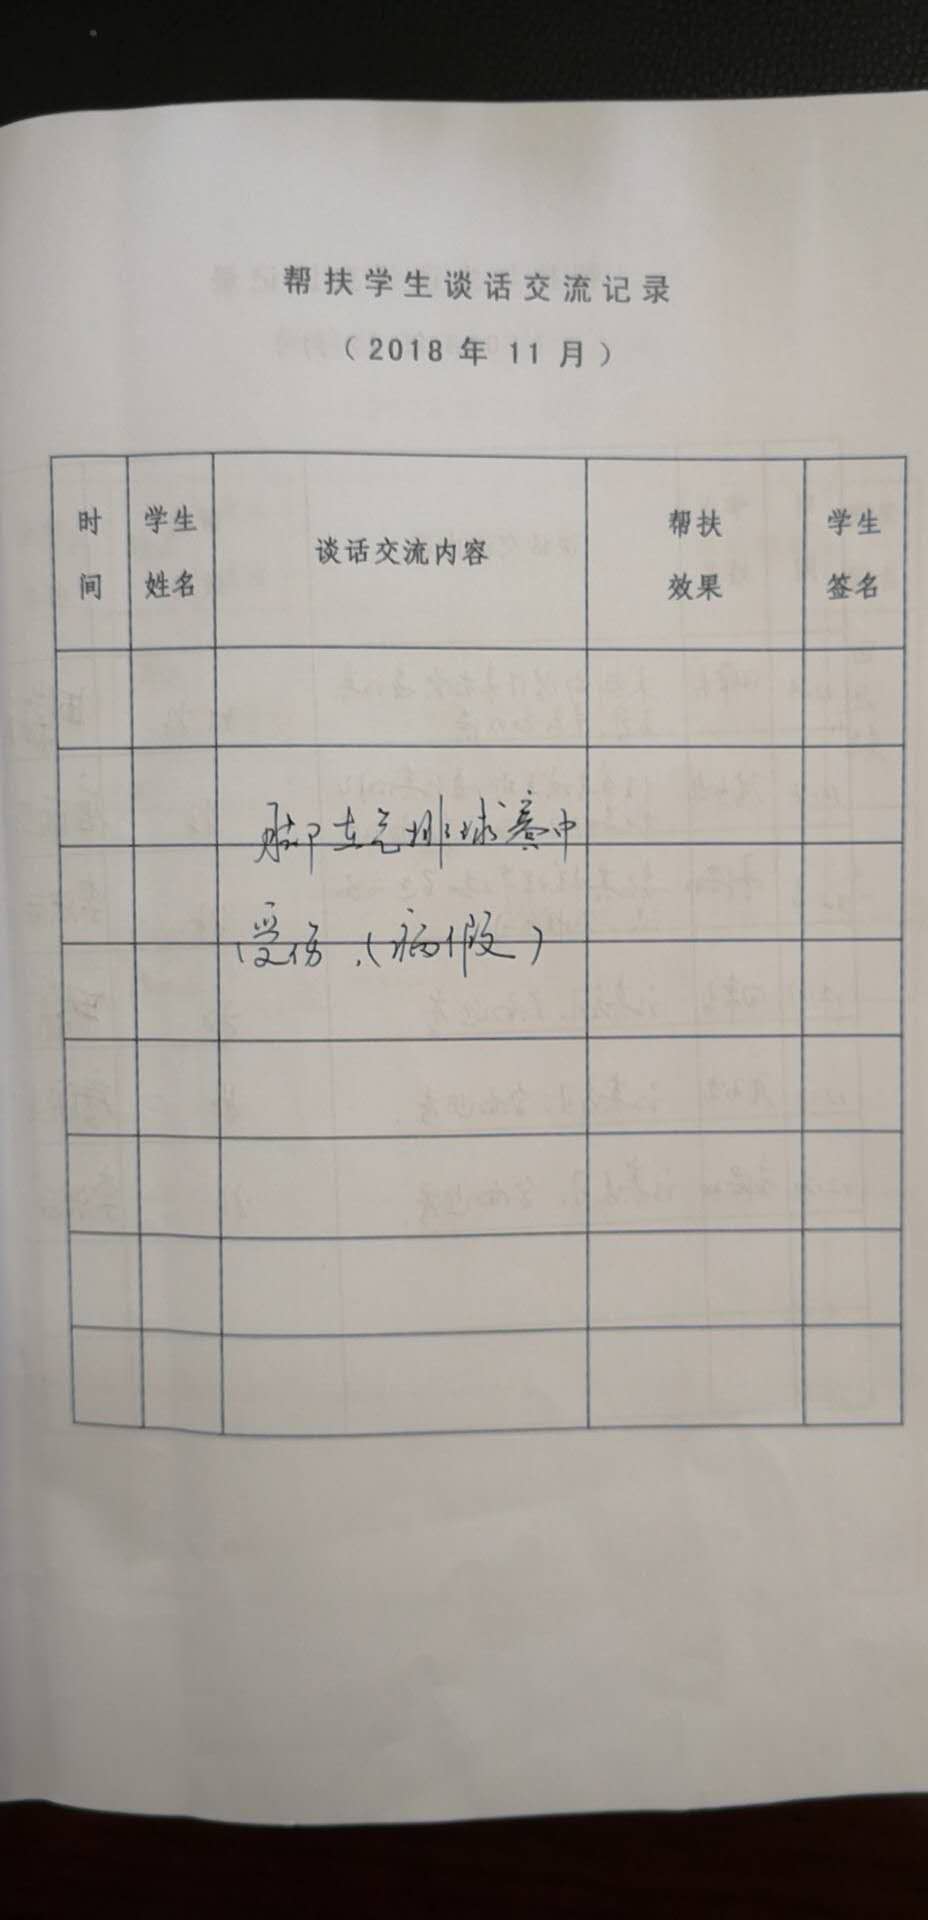 帮扶学生谈话交流记录
（2018 年 11 月）
时间
学生姓名
谈话交流内容
帮扶效果
学生签名
脚在气排球赛中
受伤.（病假）